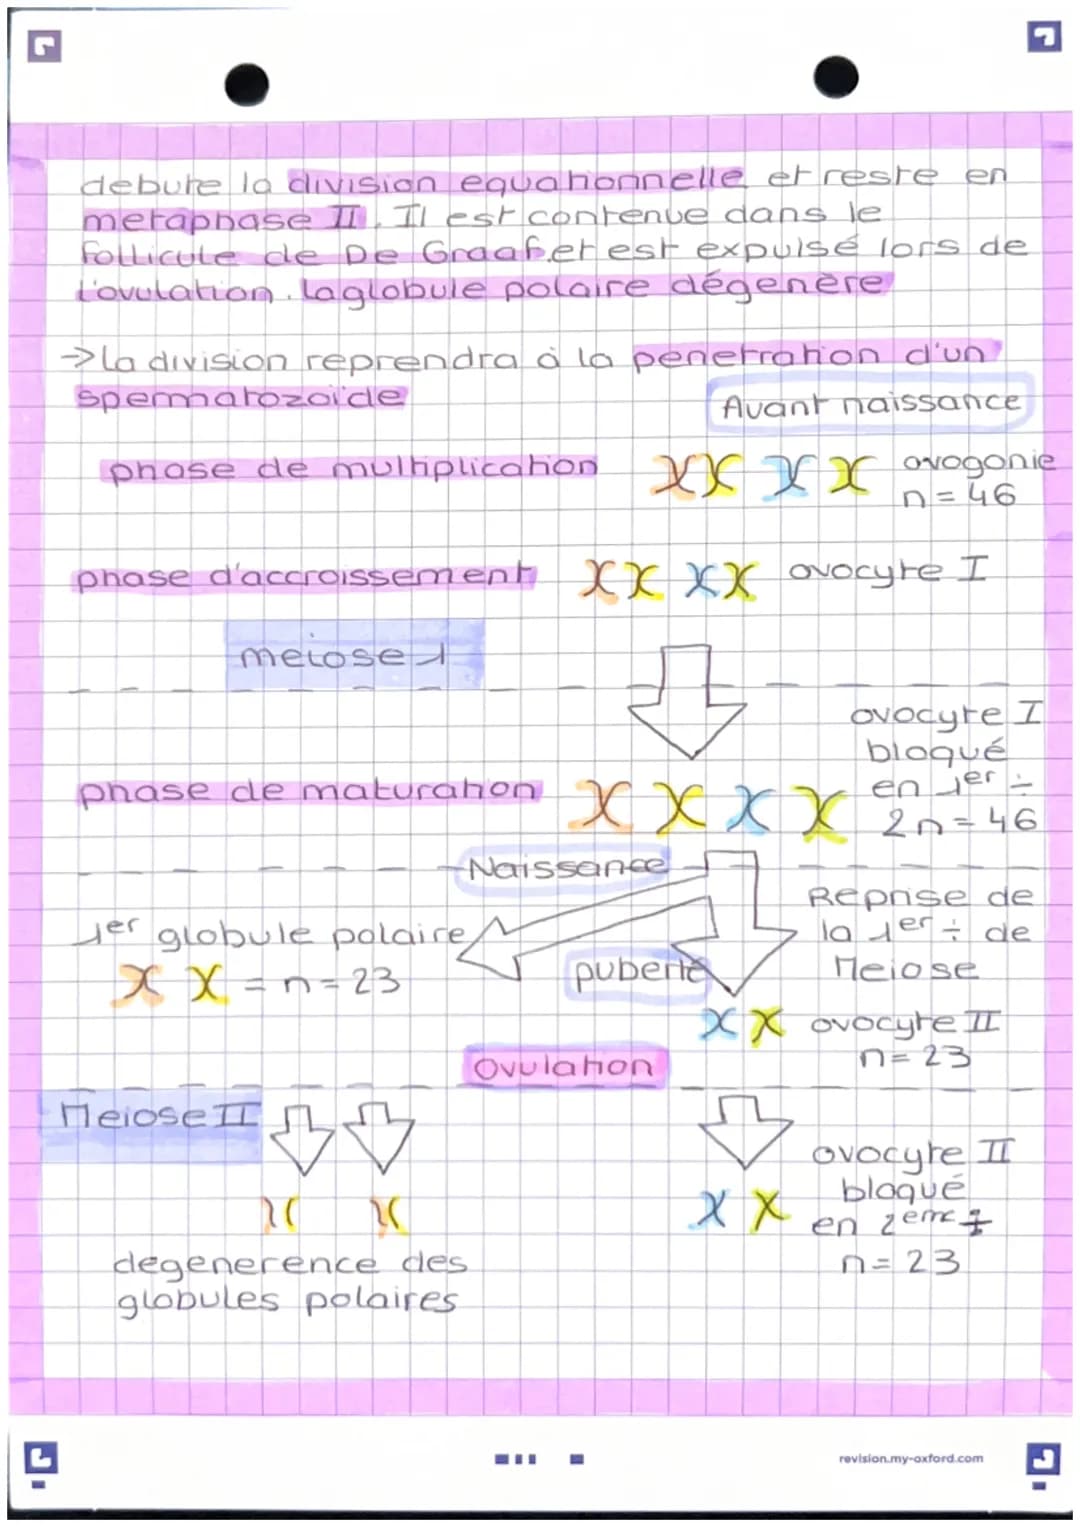 debute la division equationnelle et reste en
metaphase II. Il est contenue dans le
follicule de De Graaf.et est expulsé lors de
l'ovulation. la globule polaire dégenère
→ la division reprendra à la penetration d'un
spermatozoïde
Avant naissance
phase de multiplication
ovogonie
n = 46
phase d'accroissement
ovocyte I
meiose 1
ovocyte I
bloqué
en 1er ÷
2n = 46
phase de maturation
Naissance
1er globule polaire
= n = 23
puberté
Reprise de
la 1er ÷ de
Meiose
ovocyte II
n = 23
Ovulation
Meiose II
ovocyte II
bloqué
en 2eme ÷
n = 23
degenerence des
globules polaires
revision.my-oxford.com